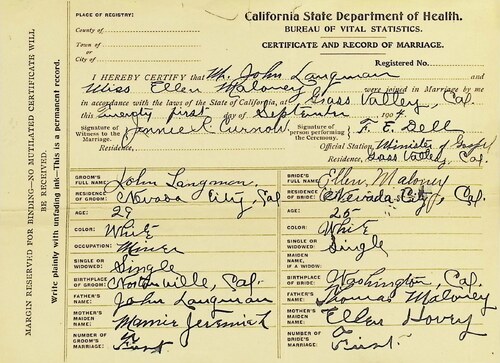 PLACE OF REGISTRY:
County of
Town of
or
City of
California State Department of Health.
BUREAU OF VITAL STATISTICS.
CERTIFICATE AND RECORD OF MARRIAGE.
Registered No.
I HEREBY CERTIFY that Mr. John Langman and
Miss Ellen Maloney were joined in Marriage by me
in accordance with the laws of the State of California, at Grass Valley, Cal.
this twenty first day of September 1904
Signature of Witness to the Marriage. Jennie R. Curnow
Signature of person performing the Ceremony. F. E. Dell
Official Station, Minister of Gospel
Residence,
Residence, Grass Valley, Cal.
GROOM'S FULL NAME: John Langman
RESIDENCE OF GROOM: Nevada City, Cal
AGE: 29
COLOR: White
OCCUPATION: Miner
SINGLE OR WIDOWED: Single
BIRTHPLACE OF GROOM: Cal.
FATHER'S NAME: John Langman
MOTHER'S MAIDEN NAME: Jeremiah
NUMBER OF GROOM'S MARRIAGE: First
BRIDE'S FULL NAME: Ellen Maloney
RESIDENCE OF BRIDE: Nevada City, Cal
AGE: 25
COLOR: White
SINGLE OR WIDOWED: Single
MAIDEN NAME, IF A WIDOW:
BIRTHPLACE OF BRIDE: Washington, Cal.
FATHER'S NAME: Thomas Maloney
MOTHER'S MAIDEN NAME: Ellen Hovey
NUMBER OF BRIDE'S MARRIAGE: First
MARGIN RESERVED FOR BINDING—NO MUTILATED CERTIFICATE WILL
BE RECEIVED.
Write plainly with unfading ink—This is a permanent record.